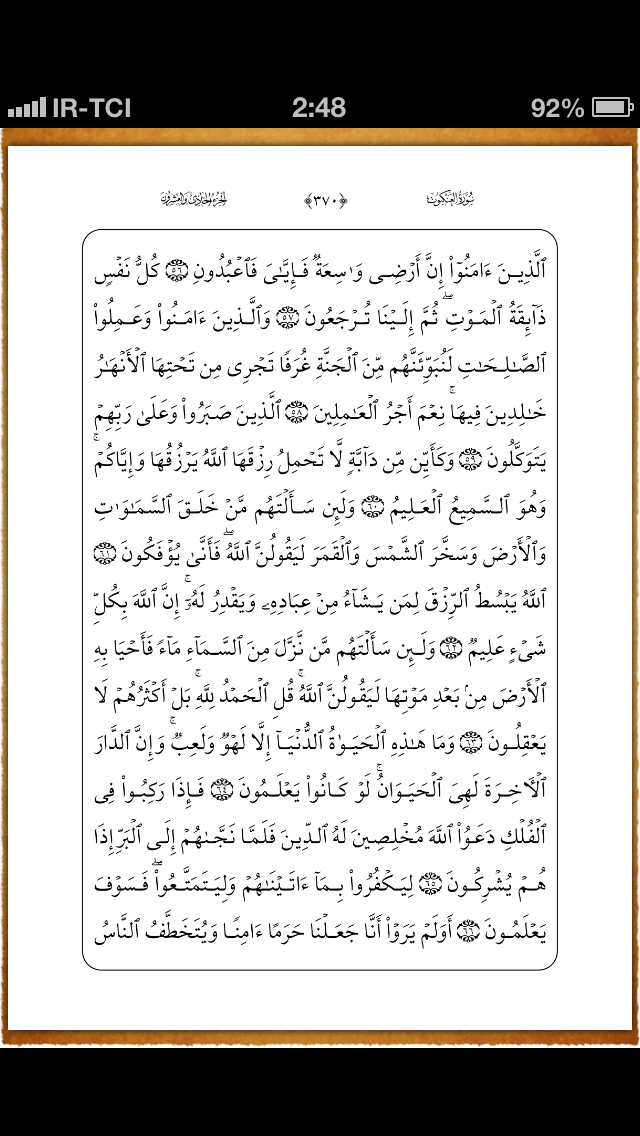 IR-TCI 2:48 92%
سُورَةُ العَنكَبُوت ﴿٣٧٠﴾ الجُزءُ الحَادِي وَالعِشرُونَ
ٱلَّذِينَ ءَامَنُوٓاْ إِنَّ أَرۡضِى وَٰسِعَةٌ فَإِيَّٰىَ فَٱعۡبُدُونِ ٥٦ كُلُّ نَفۡسٍ
ذَآئِقَةُ ٱلۡمَوۡتِۖ ثُمَّ إِلَيۡنَا تُرۡجَعُونَ ٥٧ وَٱلَّذِينَ ءَامَنُواْ وَعَمِلُواْ
ٱلصَّٰلِحَٰتِ لَنُبَوِّئَنَّهُم مِّنَ ٱلۡجَنَّةِ غُرَفًا تَجۡرِى مِن تَحۡتِهَا ٱلۡأَنۡهَٰرُ
خَٰلِدِينَ فِيهَاۚ نِعۡمَ أَجۡرُ ٱلۡعَٰمِلِينَ ٥٨ ٱلَّذِينَ صَبَرُواْ وَعَلَىٰ رَبِّهِمۡ
يَتَوَكَّلُونَ ٥٩ وَكَأَيِّن مِّن دَآبَّةٍ لَّا تَحۡمِلُ رِزۡقَهَا ٱللَّهُ يَرۡزُقُهَا وَإِيَّاكُمۡۚ
وَهُوَ ٱلسَّمِيعُ ٱلۡعَلِيمُ ٦٠ وَلَئِن سَأَلۡتَهُم مَّنۡ خَلَقَ ٱلسَّمَٰوَٰتِ
وَٱلۡأَرۡضَ وَسَخَّرَ ٱلشَّمۡسَ وَٱلۡقَمَرَ لَيَقُولُنَّ ٱللَّهُۖ فَأَنَّىٰ يُؤۡفَكُونَ ٦١
ٱللَّهُ يَبۡسُطُ ٱلرِّزۡقَ لِمَن يَشَآءُ مِنۡ عِبَادِهِۦ وَيَقۡدِرُ لَهُۥٓۚ إِنَّ ٱللَّهَ بِكُلِّ
شَىۡءٍ عَلِيمٌ ٦٢ وَلَئِن سَأَلۡتَهُم مَّن نَّزَّلَ مِنَ ٱلسَّمَآءِ مَآءً فَأَحۡيَا بِهِ
ٱلۡأَرۡضَ مِنۢ بَعۡدِ مَوۡتِهَا لَيَقُولُنَّ ٱللَّهُۚ قُلِ ٱلۡحَمۡدُ لِلَّهِۚ بَلۡ أَكۡثَرُهُمۡ لَا
يَعۡقِلُونَ ٦٣ وَمَا هَٰذِهِ ٱلۡحَيَوٰةُ ٱلدُّنۡيَآ إِلَّا لَهۡوٌ وَلَعِبٌۚ وَإِنَّ ٱلدَّارَ
ٱلۡأٓخِرَةَ لَهِىَ ٱلۡحَيَوَانُۚ لَوۡ كَانُواْ يَعۡلَمُونَ ٦٤ فَإِذَا رَكِبُواْ فِى
ٱلۡفُلۡكِ دَعَوُاْ ٱللَّهَ مُخۡلِصِينَ لَهُ ٱلدِّينَ فَلَمَّا نَجَّىٰهُمۡ إِلَى ٱلۡبَرِّ إِذَا
هُمۡ يُشۡرِكُونَ ٦٥ لِيَكۡفُرُواْ بِمَآ ءَاتَيۡنَٰهُمۡ وَلِيَتَمَتَّعُواْۖ فَسَوۡفَ
يَعۡلَمُونَ ٦٦ أَوَلَمۡ يَرَوۡاْ أَنَّا جَعَلۡنَا حَرَمًا ءَامِنًا وَيُتَخَطَّفُ ٱلنَّاسُ